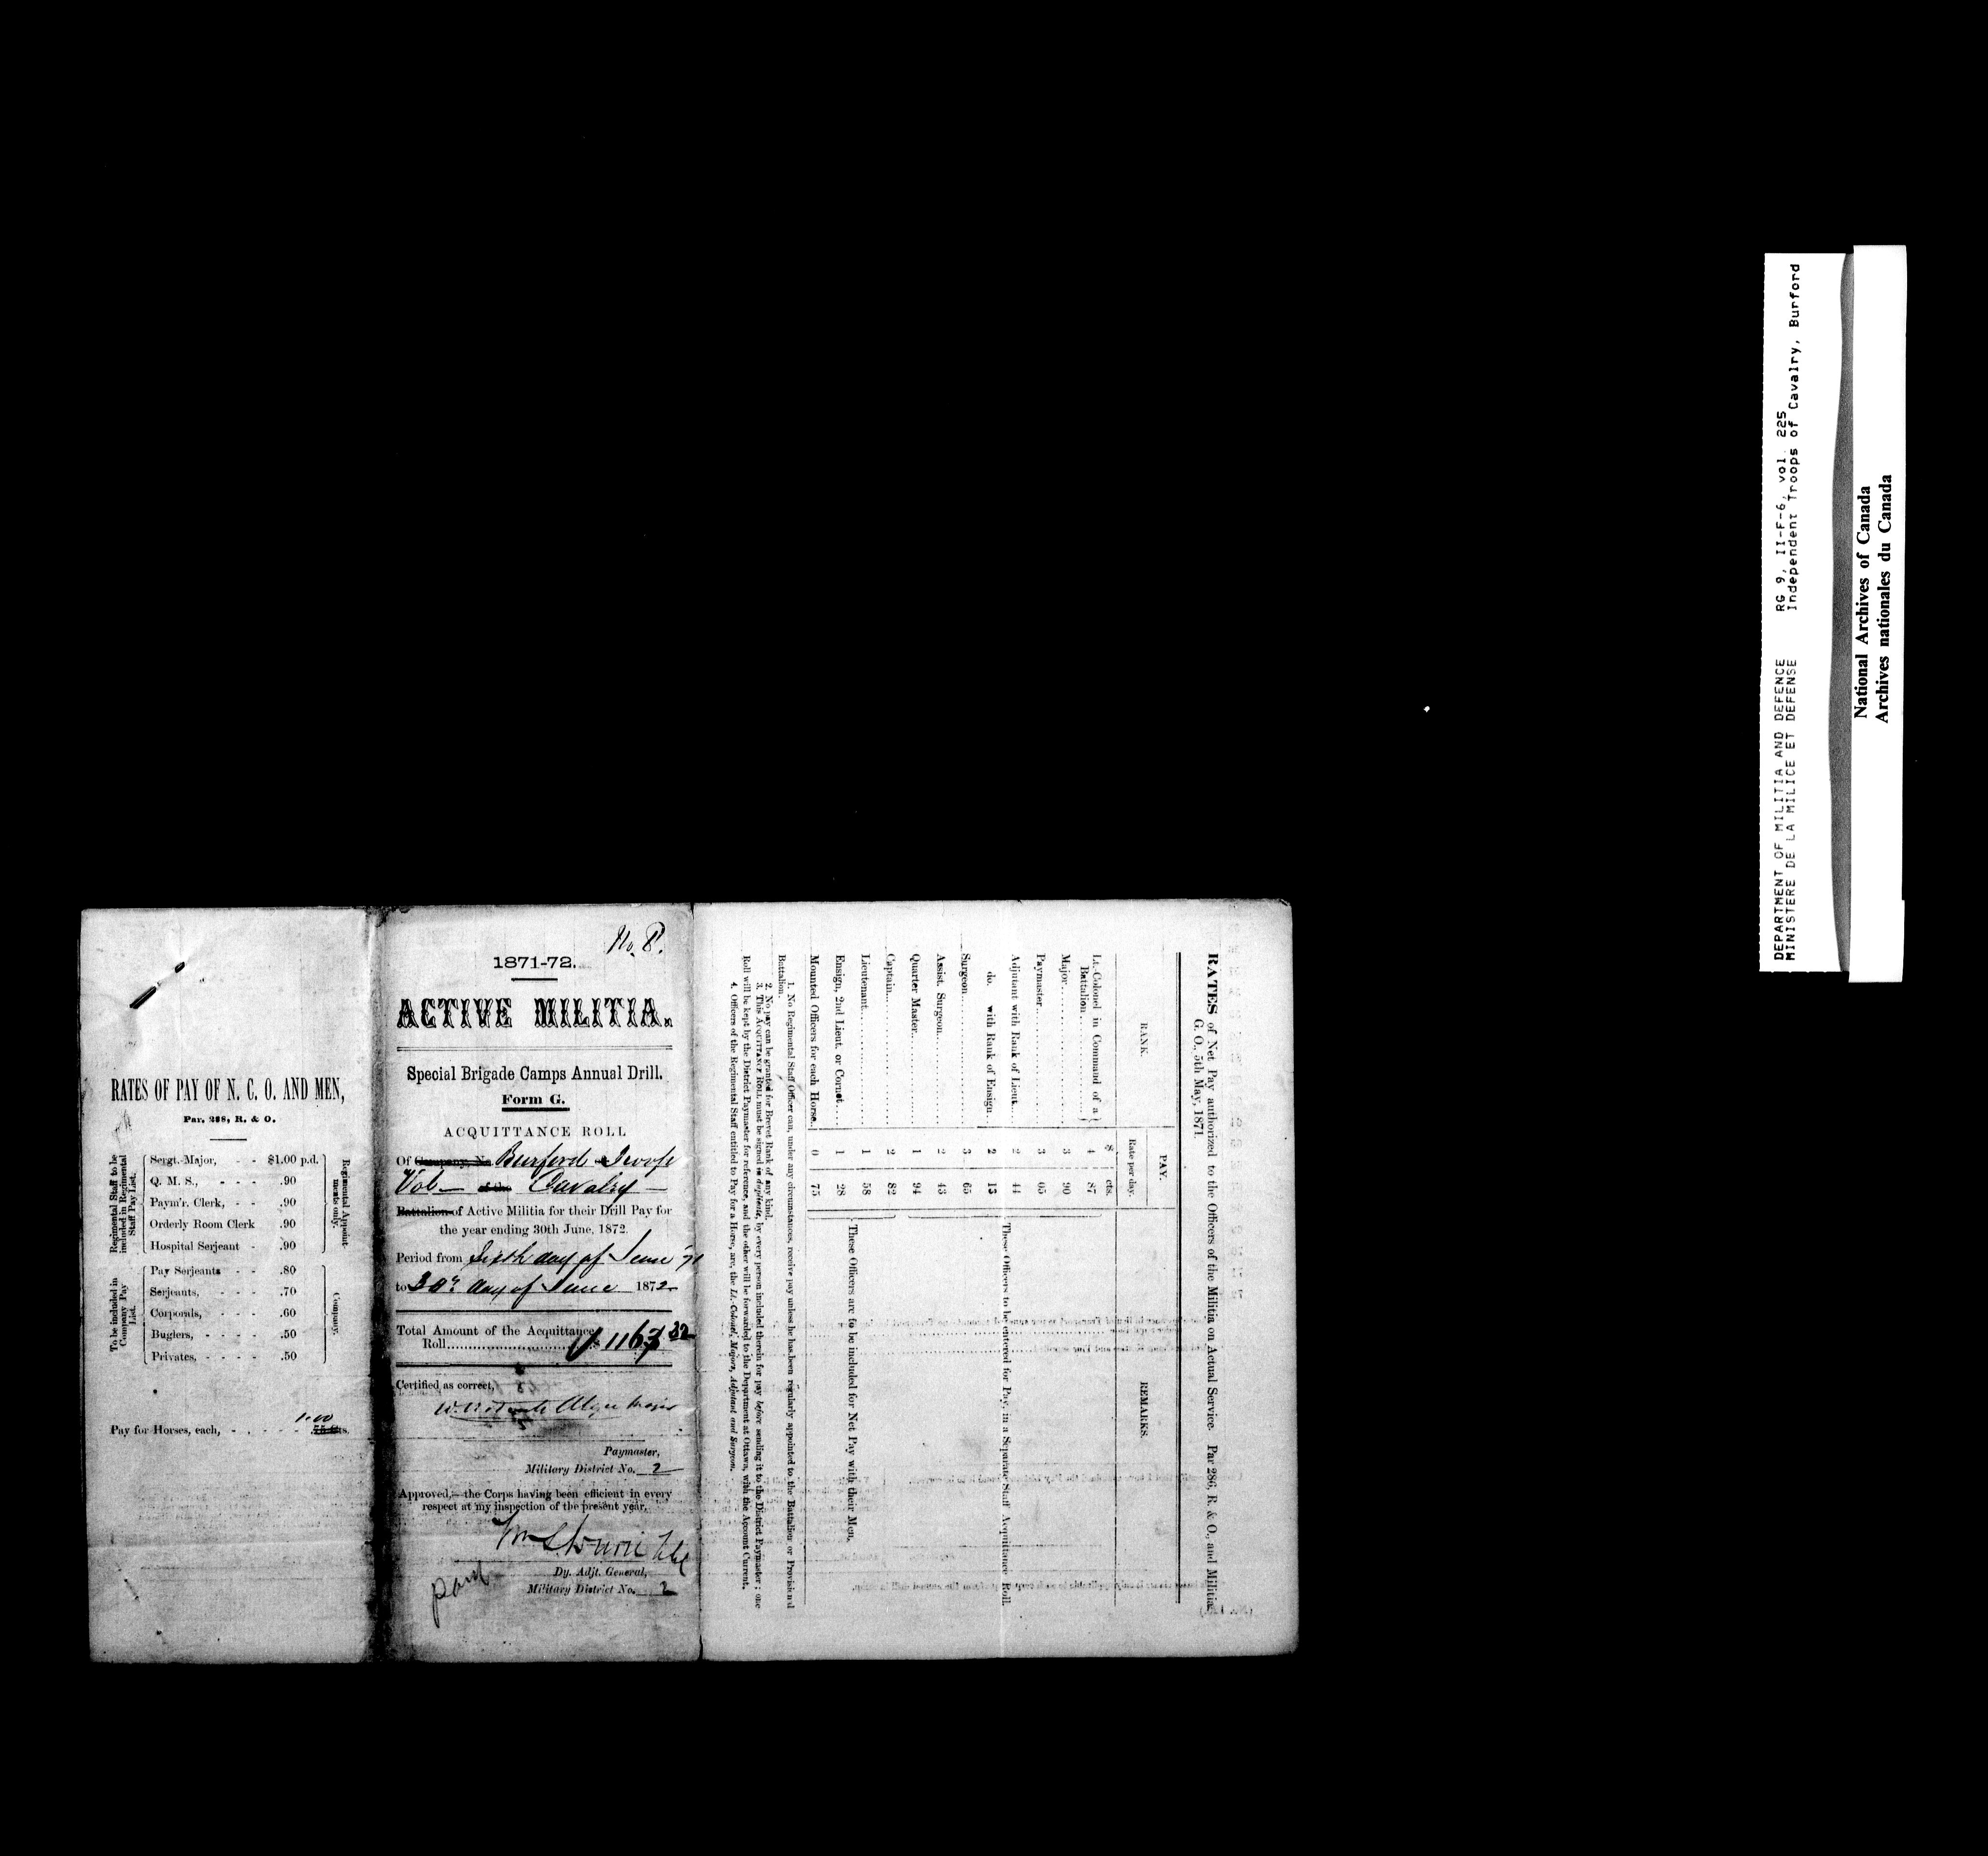 RATES OF PAY OF N. C. O. AND MEN,
Par. 288, R. & O.
Regimental Staff to be included in Regimental Staff Pay List.
Sergt.-Major, - - $1.00 p.d.
Q. M. S., - - - .90
Paym'r. Clerk, - - .90
Orderly Room Clerk .90
Hospital Serjeant - .90
Regimental Appointments only.
To be included in Company Pay List.
Pay Serjeants - - .80
Serjeants, - - - .70
Corporals, - - - .60
Buglers, - - - - .50
Privates, - - - - .50
Company.
1.00
Pay for Horses, each, - - - - - 75 cts.
No. 8.
1871-72.
ACTIVE MILITIA.
Special Brigade Camps Annual Drill.
Form G.
ACQUITTANCE ROLL
Of Company No. Burford Troop
Vol of the Cavalry
Battalion of Active Militia for their Drill Pay for
the year ending 30th June, 1872.
Period from Sixth day of June 71
to 30th day of June 1872
Total Amount of the Acquittance
Roll.............................$ 1163 32
Certified as correct,
Paymaster,
Military District No. 2
Approved,—the Corps having been efficient in every
respect at my inspection of the present year,
Dy. Adjt. General,
Military District No. 2
paid
RATES of Net Pay authorized to the Officers of the Militia on Actual Service. Par 286, R. & O., and Militia
G. O., 5th May, 1871.
RANK. PAY. REMARKS.
Rate per day.
$ cts.
Lt.-Colonel in Command of a
Battalion........ 4 87
Major........ 3 90
Paymaster........ 3 05
Adjutant with Rank of Lieut... 2 44
do. with Rank of Ensign.. 2 13
Surgeon........ 3 65
Assist. Surgeon........ 2 43
Quarter Master........ 1 94
These Officers to be entered for Pay, in a Separate Staff Acquittance Roll.
Captain........ 2 82
Lieutenant........ 1 58
Ensign, 2nd Lieut. or Cornet.... 1 28
Mounted Officers for each Horse. 0 75
These Officers are to be included for Net Pay with their Men.
1. No Regimental Staff Officer can, under any circumstances, receive pay unless he has been regularly appointed to the Battalion or Provisional
Battalion.
2. No pay can be granted for Brevet Rank of any kind.
3. This ACQUITTANCE ROLL must be signed in duplicate, by every person included therein for pay before sending it to the District Paymaster; one
Roll will be kept by the District Paymaster for reference, and the other will be forwarded to the Department at Ottawa, with the Account Current.
4. Officers of the Regimental Staff entitled to Pay for a Horse, are, the Lt.-Colonel, Majors, Adjutant and Surgeon.
DEPARTMENT OF MILITIA AND DEFENCE RG 9, II-F-6, vol. 225
MINISTERE DE LA MILICE ET DEFENSE Independent Troops of Cavalry, Burford
National Archives of Canada
Archives nationales du Canada